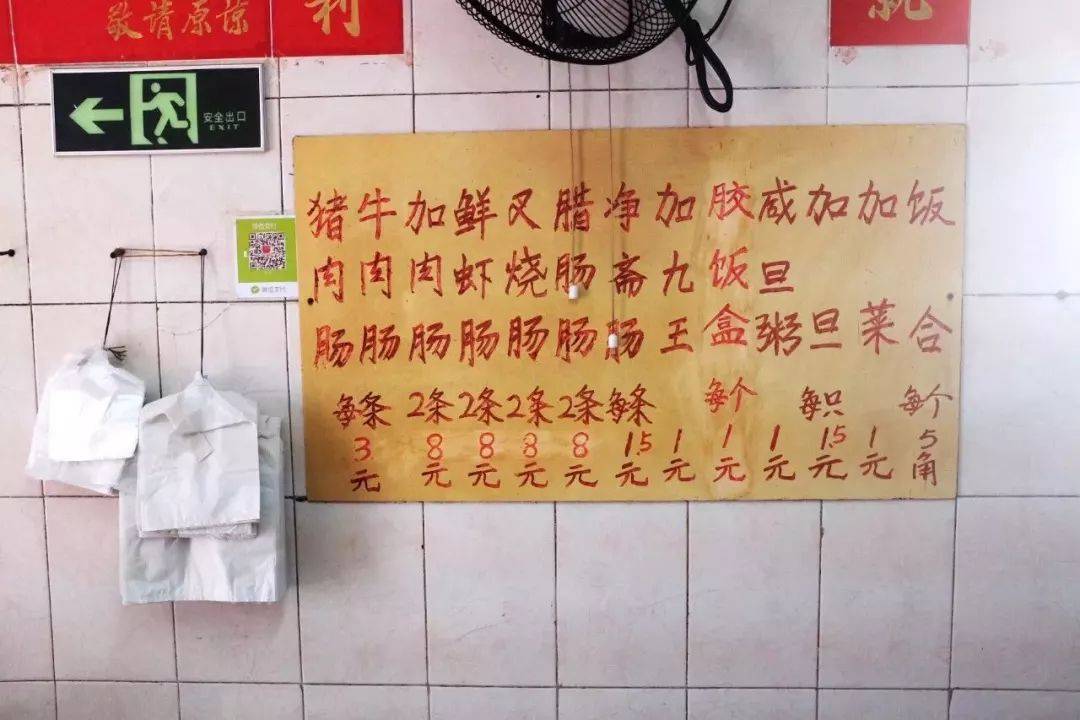 敬请原谅
利
安全出口
EXIT
微信支付
猪肉肠
牛肉肠
每条3元
加肉肠2条8元
鲜虾肠2条8元
叉烧肠2条8元
腊肠肠2条8元
净斋肠每条1.5元
加九王1元
胶饭盒每个1元
咸旦粥1元
加旦每只1.5元
加菜1元
饭合每个5角